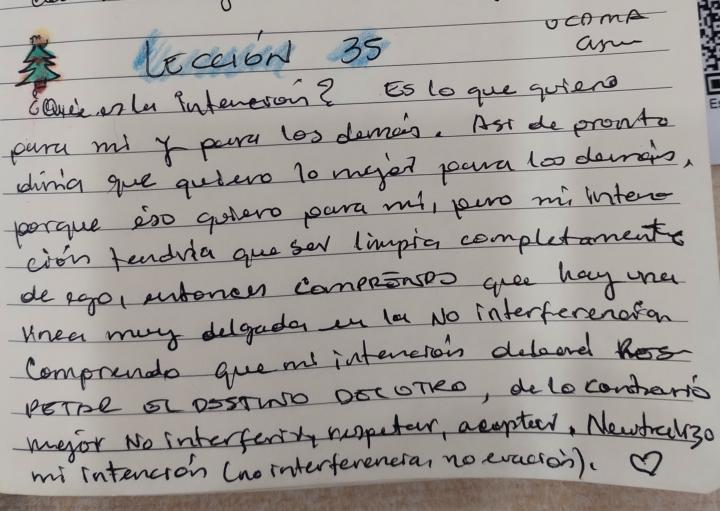 LECCIÓN 35
UCDMA
¿Qué es la intención? Es lo que quiero
para mi y para los demás. Asi de pronto
diria que quiero lo mejor para los demás,
porque éso quiero para mi, pero mi inten-
ción tendría que ser limpia completamente
de ego, entonces COMPRENDO que hay una
linea muy delgada en la No interferencia
Comprendo que mi intención deberá RES-
PETAR EL DESTINO DEL OTRO, de lo contrario
mejor No interferir, respetar, aceptar. Neutralizo
mi intención (no interferencia, no evación). ♡